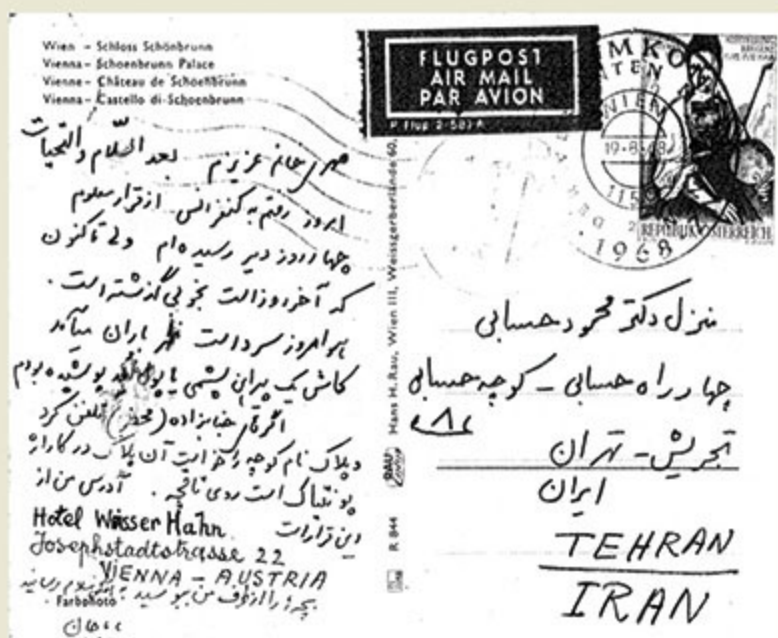 Wien – Schloss Schönbrunn
Vienna – Schoenbrunn Palace
Vienne – Château de Schoenbrunn
Vienna – Castello di Schoenbrunn
FLUGPOST
AIR MAIL
PAR AVION
WIEN
19-8-68
1150
1968
REPUBLIK ÖSTERREICH
عزیزم بعد السّلام والتحیات
امروز رفتم به کنفرانس از قرار معلوم
چهار روز دیر رسیده‌ام ولی تاکنون
که آخر روز است بخوبی گذشته است.
هوا امروز سرد است باران میآید
کاش یک پیراهن پشمی یا پوشیده بودم
اگر تلفن کرد
پلاک نام کوچه را آن پلاک در گاراژ
پونتیاک است روی تاقچه. آدرس من از
این قرار است
Hotel Wasser Hahn
Josephstadtstrasse 22
VIENNA – AUSTRIA
بچه‌ها را از طرف من ببوسید
Farbphoto
Hans H. Rau, Wien III, Weissgerberlände 60,
RAU
R 844
منزل دکتر محمود حسابی
چهار راه حسابی – کوچه حسابی
تجریش – تهران
ایران
TEHRAN
IRAN